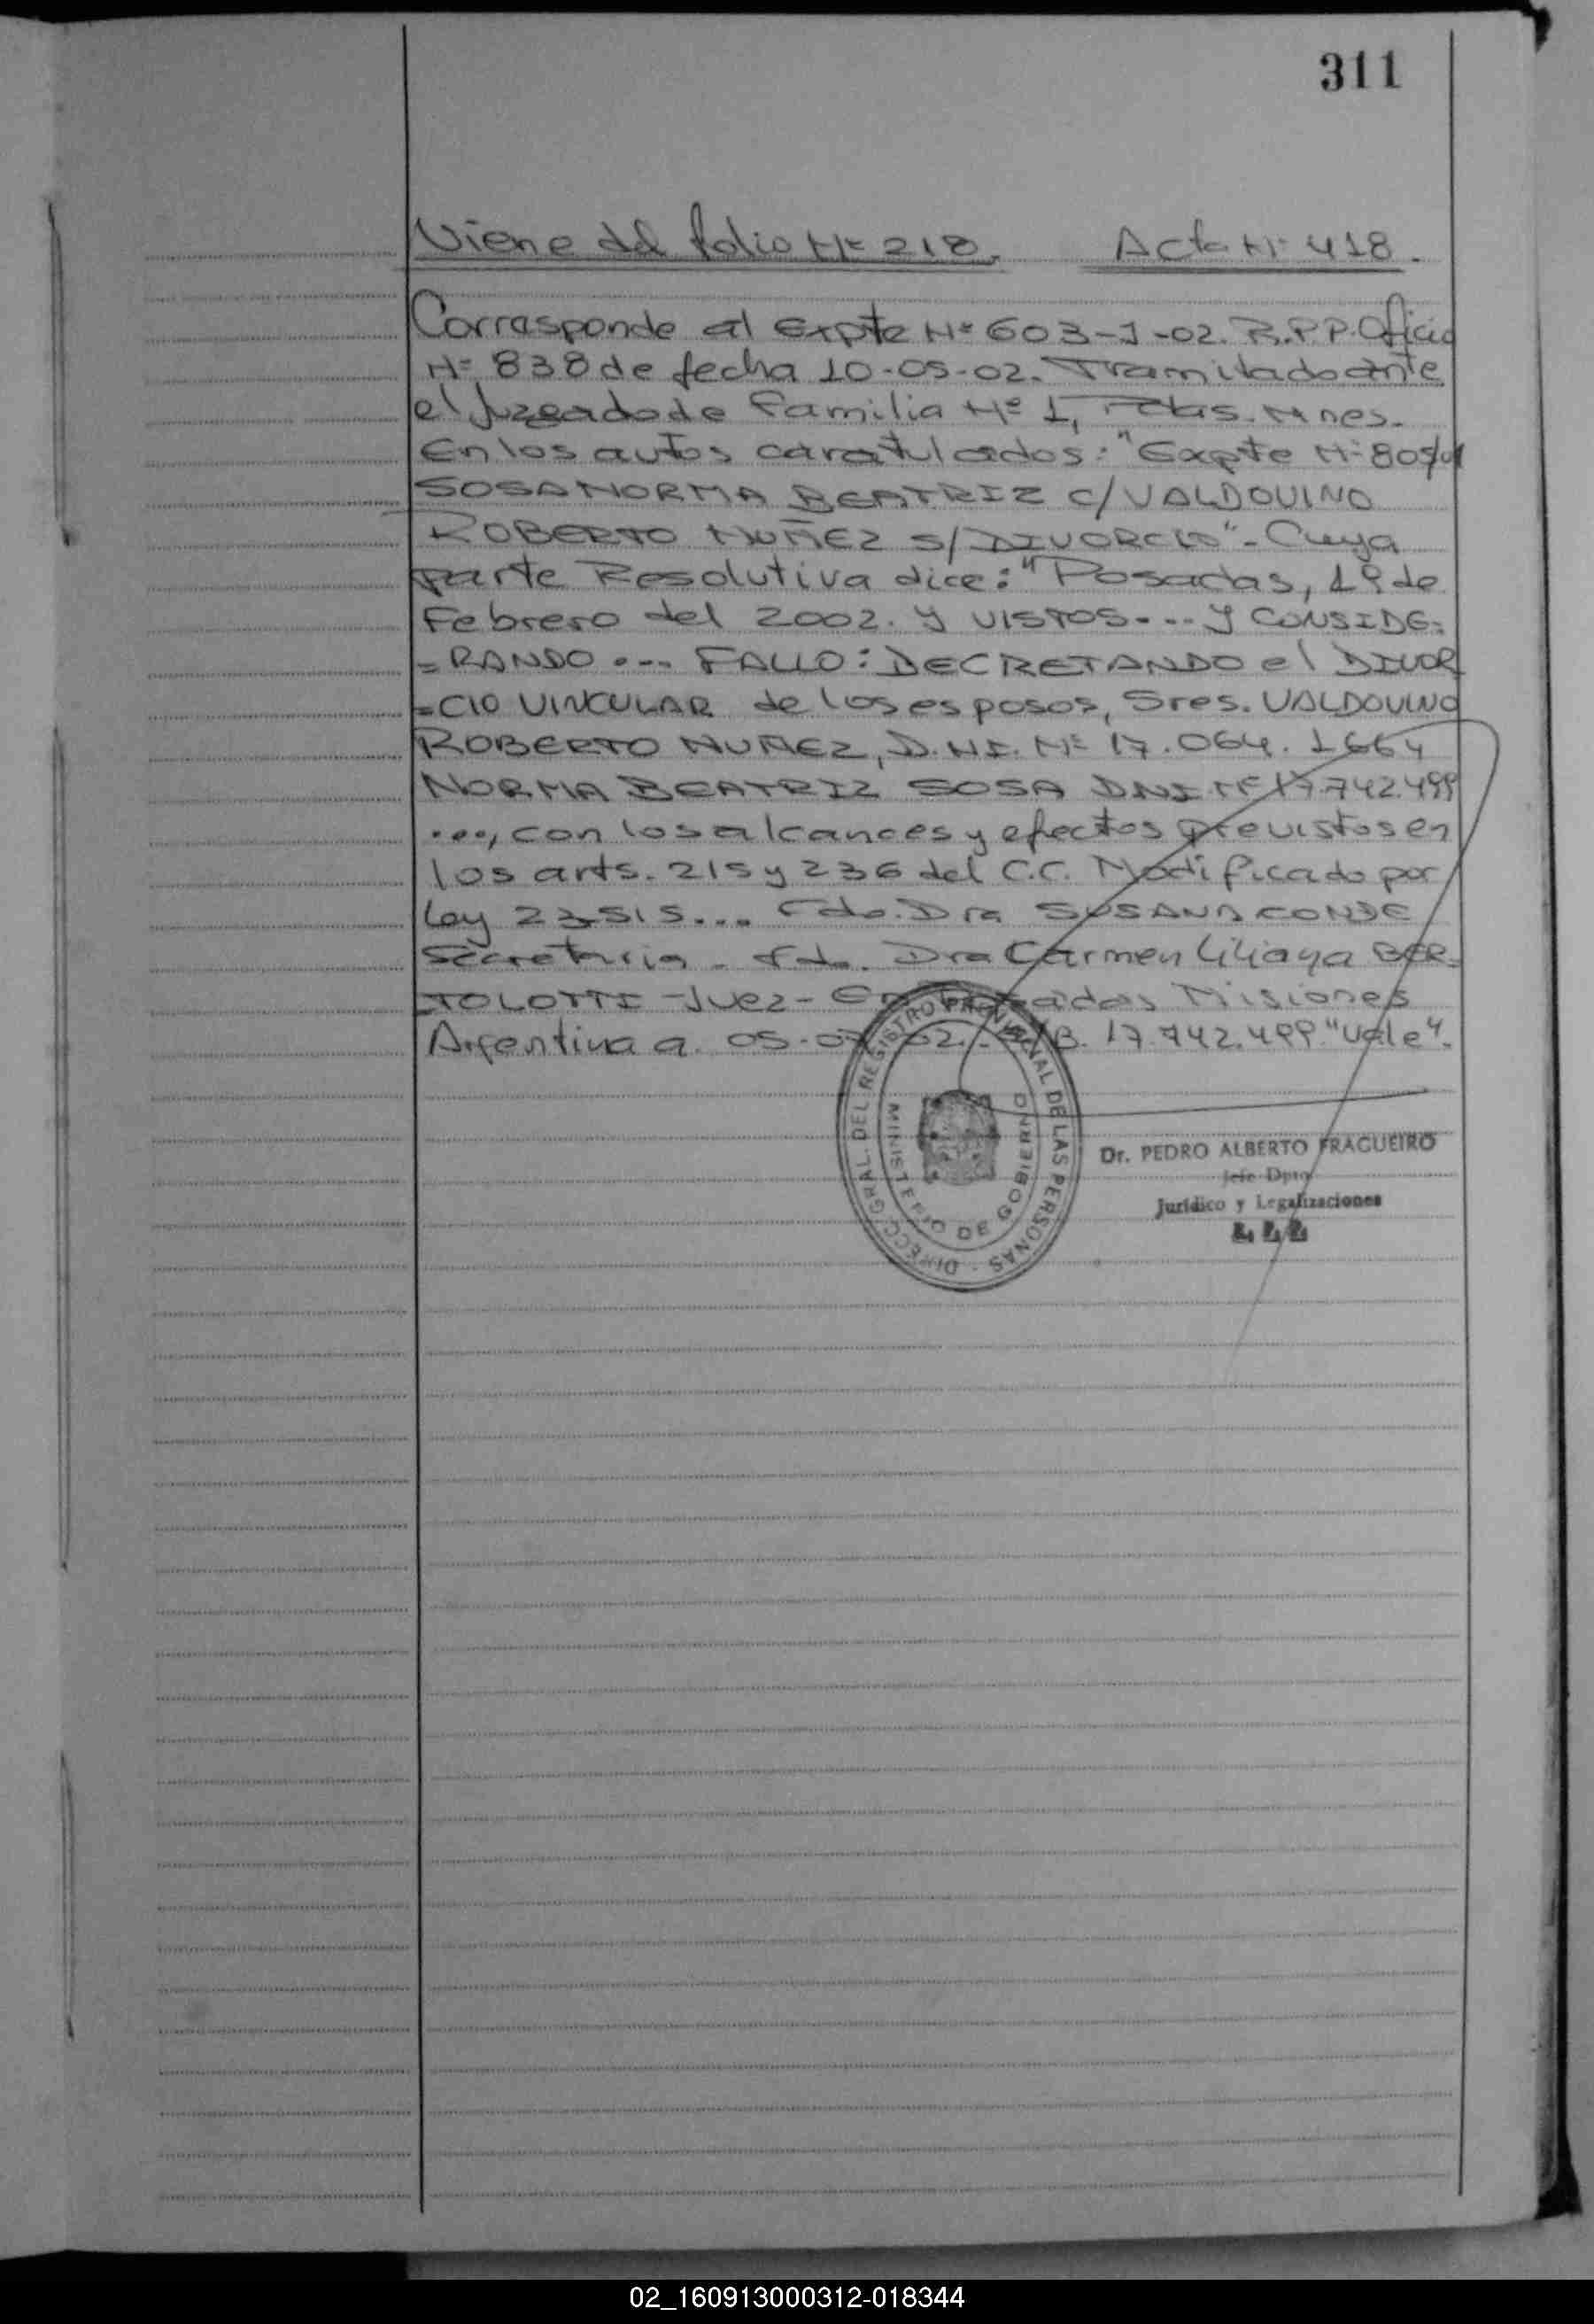 311
Viene del folio Nº 218. Acta Nº 418.
Corresponde al Expte Nº 603-J-02. R.P.P. Oficio
Nº 838 de fecha 10-05-02. Tramitado ante
el Juzgado de Familia Nº 1, Pdas. Mnes.
En los autos caratulados: "Expte Nº 805/01
SOSA NORMA BEATRIZ C/ VALDOVINO
ROBERTO NUÑEZ S/DIVORCIO"- Cuya
parte Resolutiva dice: "Posadas, 19 de
Febrero del 2002. Y VISTOS... Y CONSIDE=
=RANDO ... FALLO: DECRETANDO el DIVOR
=CIO VINCULAR de los esposos, Sres. VALDOVINO
ROBERTO NUÑEZ, D.N.I. Nº 17.064.166 y
NORMA BEATRIZ SOSA DNI Nº 17.742.499
..., con los alcances y efectos previstos en
los arts. 215 y 236 del C.C. Modificado por
Ley 23.515... Fdo. Dra SUSANA CONDE
Secretaria - Fdo. Dra Carmen Liliana BER=
=TOLOTTI - Juez - En Posadas Misiones
Argentina a. 05-07-02. 17.742.499 "Vale".
DIRECC. GRAL. DEL REGISTRO PROVINCIAL DE LAS PERSONAS
MINISTERIO DE GOBIERNO
Dr. PEDRO ALBERTO FRAGUEIRO
Jefe Dpto
Jurídico y Legalizaciones
02_160913000312-018344